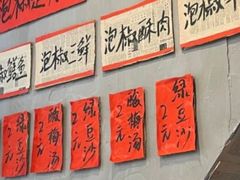 泡椒鳝鱼
泡椒三鲜
泡椒酥肉
绿豆沙
2元
酸梅汤
2元
绿豆沙
2元
酸梅汤
2元
绿豆沙
2元